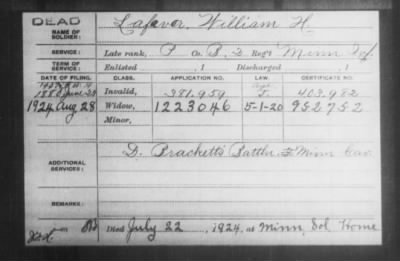 DEAD
NAME OF SOLDIER: Lafaver, William H.
SERVICE: Late rank, P Co. B, 2 Reg't Minn Inf
TERM OF SERVICE: Enlisted , 1 Discharged , 1
DATE OF FILING. CLASS. APPLICATION NO. LAW. CERTIFICATE NO.
1880 June 23 Invalid, 381.959 403,982
1924 Aug 28 Widow, 1223046 5-1-20 952752
Minor,
ADDITIONAL SERVICES: D. Bracketts Battln. Minn Cav.
REMARKS:
Died July 22, 1924, at Minn. Sol. Home